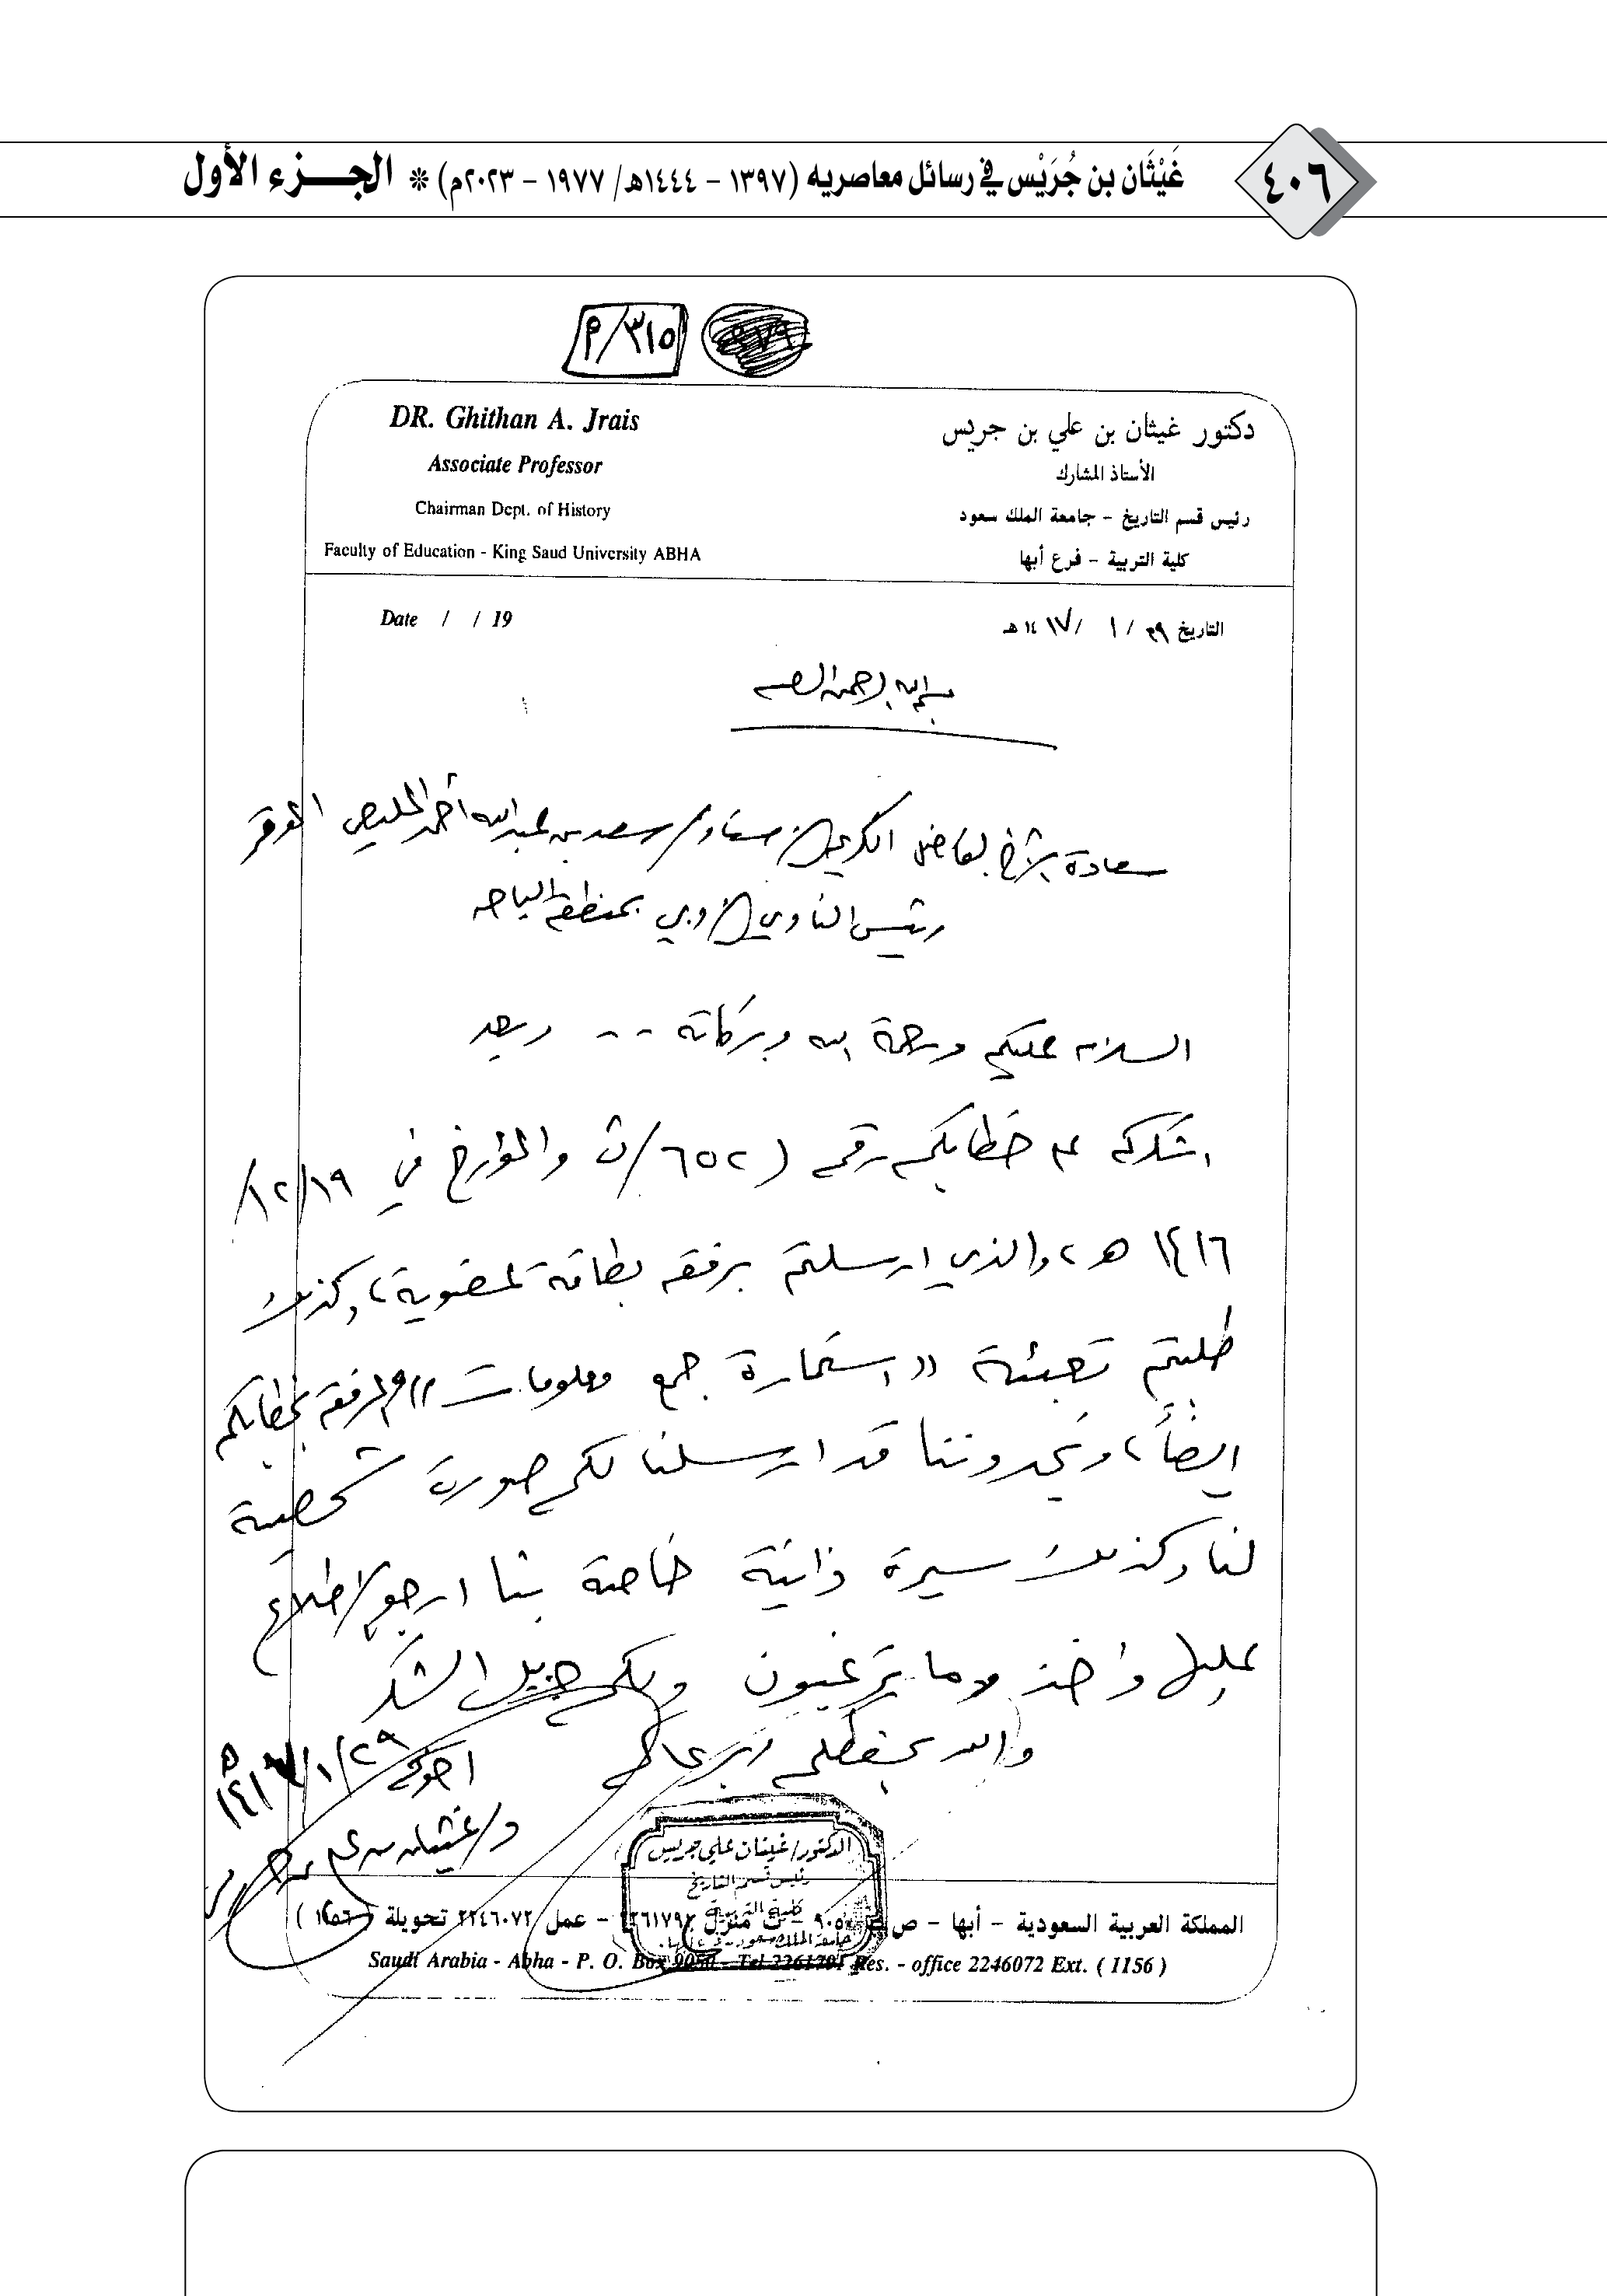 ٤٠٦
غَيْثَان بن جُرَيْس في رسائل معاصريه (١٣٩٧ - ١٤٤٤هـ/ ١٩٧٧ - ٢٠٢٣م) * الجـــزء الأول
٣١٥/م
DR. Ghithan A. Jrais
Associate Professor
Chairman Dept. of History
Faculty of Education - King Saud University ABHA
دكتور غيثان بن علي بن جريس
الأستاذ المشارك
رئيس قسم التاريخ - جامعة الملك سعود
كلية التربية - فرع أبها
Date / / 19
التاريخ ٢٩/ ١ /١٤١٧هـ
بسم الله الرحمن الرحيم
سعادة الأخ الفاضل الكريم الأستاذ/ سعد بن عبدالله أحمد المليص الموقر
رئيس النادي الأدبي بمنطقة الباحة
السلام عليكم ورحمة الله وبركاته .. وبعد
اشكركم على خطابكم رقم (٦٥٢/ث والمؤرخ في ١٢/١٩/
١٤١٦هـ، والذي ارسلتم برفقه بطاقة العضوية، وكذلك
طلبتم تعبئة ((استمارة جمع معلومات)) والمرفقة بخطابكم
ايضاً، وتجدوننا قد ارسلنا لكم صورة شخصية
لنا وكذلك سيرة ذاتية خاصة بنا ارجو الاطلاع
عليها وأخذ ما ترغبون ولكم جزيل الشكر
والله يحفظكم ويرعاكم
اخوكم
٢٩/١/١٤١٧هـ
د/غيثان بن علي بن جريس
الدكتور/غيثان علي جريس
رئيس قسم التاريخ
كلية التربية
المملكة العربية السعودية - أبها - ص.ب ٩٠٥٠ - ت منزل ٢٢٦١٧٩١ - عمل ٢٢٤٦٠٧٢ تحويلة
Saudi Arabia - Abha - P. O. Box 9050 - Tel 2261791 Res. - office 2246072 Ext. ( 1156 )